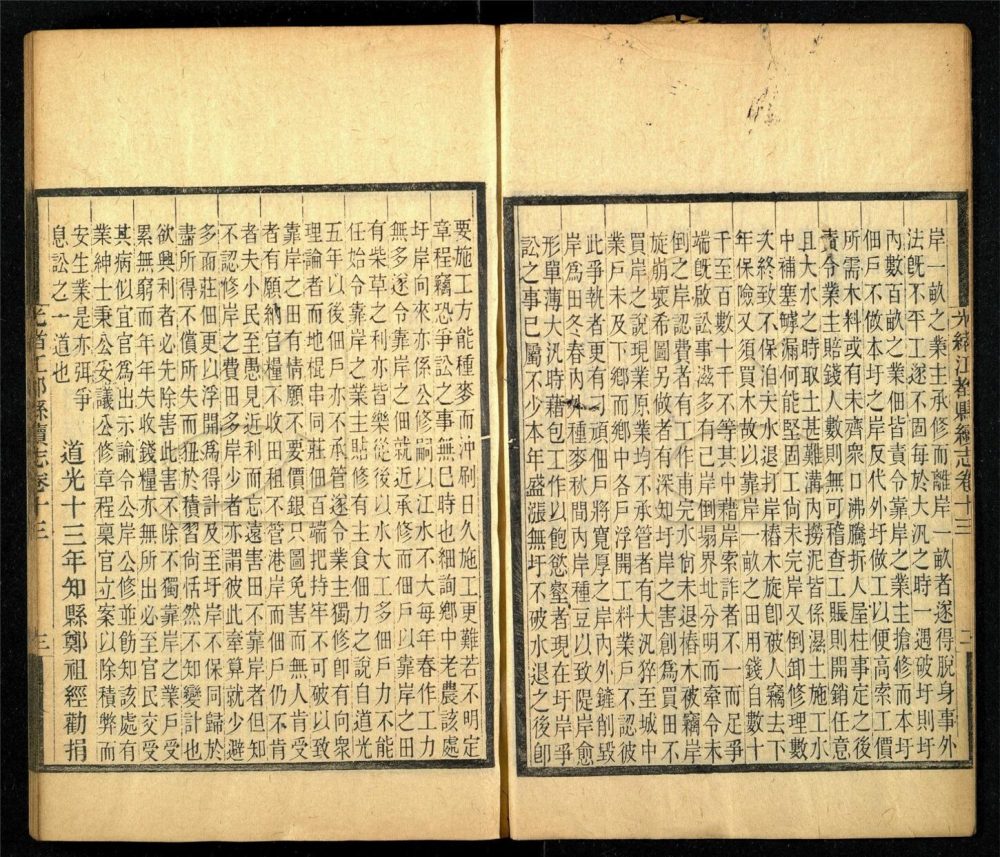 光緒江都縣續志卷十三 二
岸一畝之業主承修而離岸一畝者遂得脫身事外
法既不平工遂不固每於大汛之時一遇破圩則圩
內數百畝之業佃皆責令靠岸之業主搶修而本圩
佃戶不做本圩之岸反代外圩做工以便高索工價
所需木料或有未齊衆口沸騰折人屋柱事定之後
責令業主賠錢人數則無可稽查工賬則開銷任意
且大水之時取土甚難溝內撈泥皆係濕土施工水
中補塞罅漏何能堅固工尙未完岸又倒卸修理數
次終致不保洎夫水退打岸樁木旋卽被人竊去下
年保險又須買木故以靠岸一畝之田用錢自數十
千至百數十千不等其中藉岸索詐者不一而足爭
端既啟訟事滋多有己岸倒塌界址分明而牽令未
倒之岸認費者有工作甫完水尙未退樁木被竊岸
旋崩壞希圖另做者有深知圩岸之害創爲買田不
買岸之說現業原業均不承管者有大汛猝至城中
業戶未及下鄉而鄉中各戶浮開工料業戶不認彼
此爭執者更有刁頑佃戶將寬厚之岸內外鏟削毀
岸爲田冬春內外種麥秋間內岸種豆以致隄岸愈
形單薄大汛時藉包工作以飽慾壑者現在圩岸爭
訟之事已屬不少本年盛漲無圩不破水退之後卽
要施工方能種麥而沖刷日久施工更難若不明定
章程竊恐爭訟之事無已時也細詢鄉中老農該處
圩岸向來亦係公修嗣以江水不大每年春作工力
無多遂令靠岸之佃就近承修而佃戶以靠岸之田
有柴草之利亦皆樂從後以水大工多佃戶力不能
任始令靠岸之業主貼修有主食佃力之說自道光
五年以後佃戶亦不承管遂令業主獨修卽有向衆
理論者而地棍串同莊佃百端把持牢不可破以致
靠岸之田有情願不要價銀只圖免害而無人肯受
者有願納官糧不收田租不管港岸而佃戶仍不肯
者夫小民至愚見近利而忘遠害田不靠岸者但知
不認修岸之費田多岸少者亦謂彼此牽算就少避
多而莊佃更以浮開爲得計及至圩岸不保同歸於
盡所得不償所失而狃於積習尙恬然不知變計也
欲興利者必先除害此害不除不獨靠岸之業戶受
累無窮而年年失收錢糧亦無所出必至官民交受
其病似宜官爲出示諭令公岸公修並飭知該處有
業紳士秉公妥議公修章程稟官立案以除積弊而
安生業是亦弭爭
息訟之一道也 道光十三年知縣鄭祖經勸捐
光緒江都縣續志卷十三 三